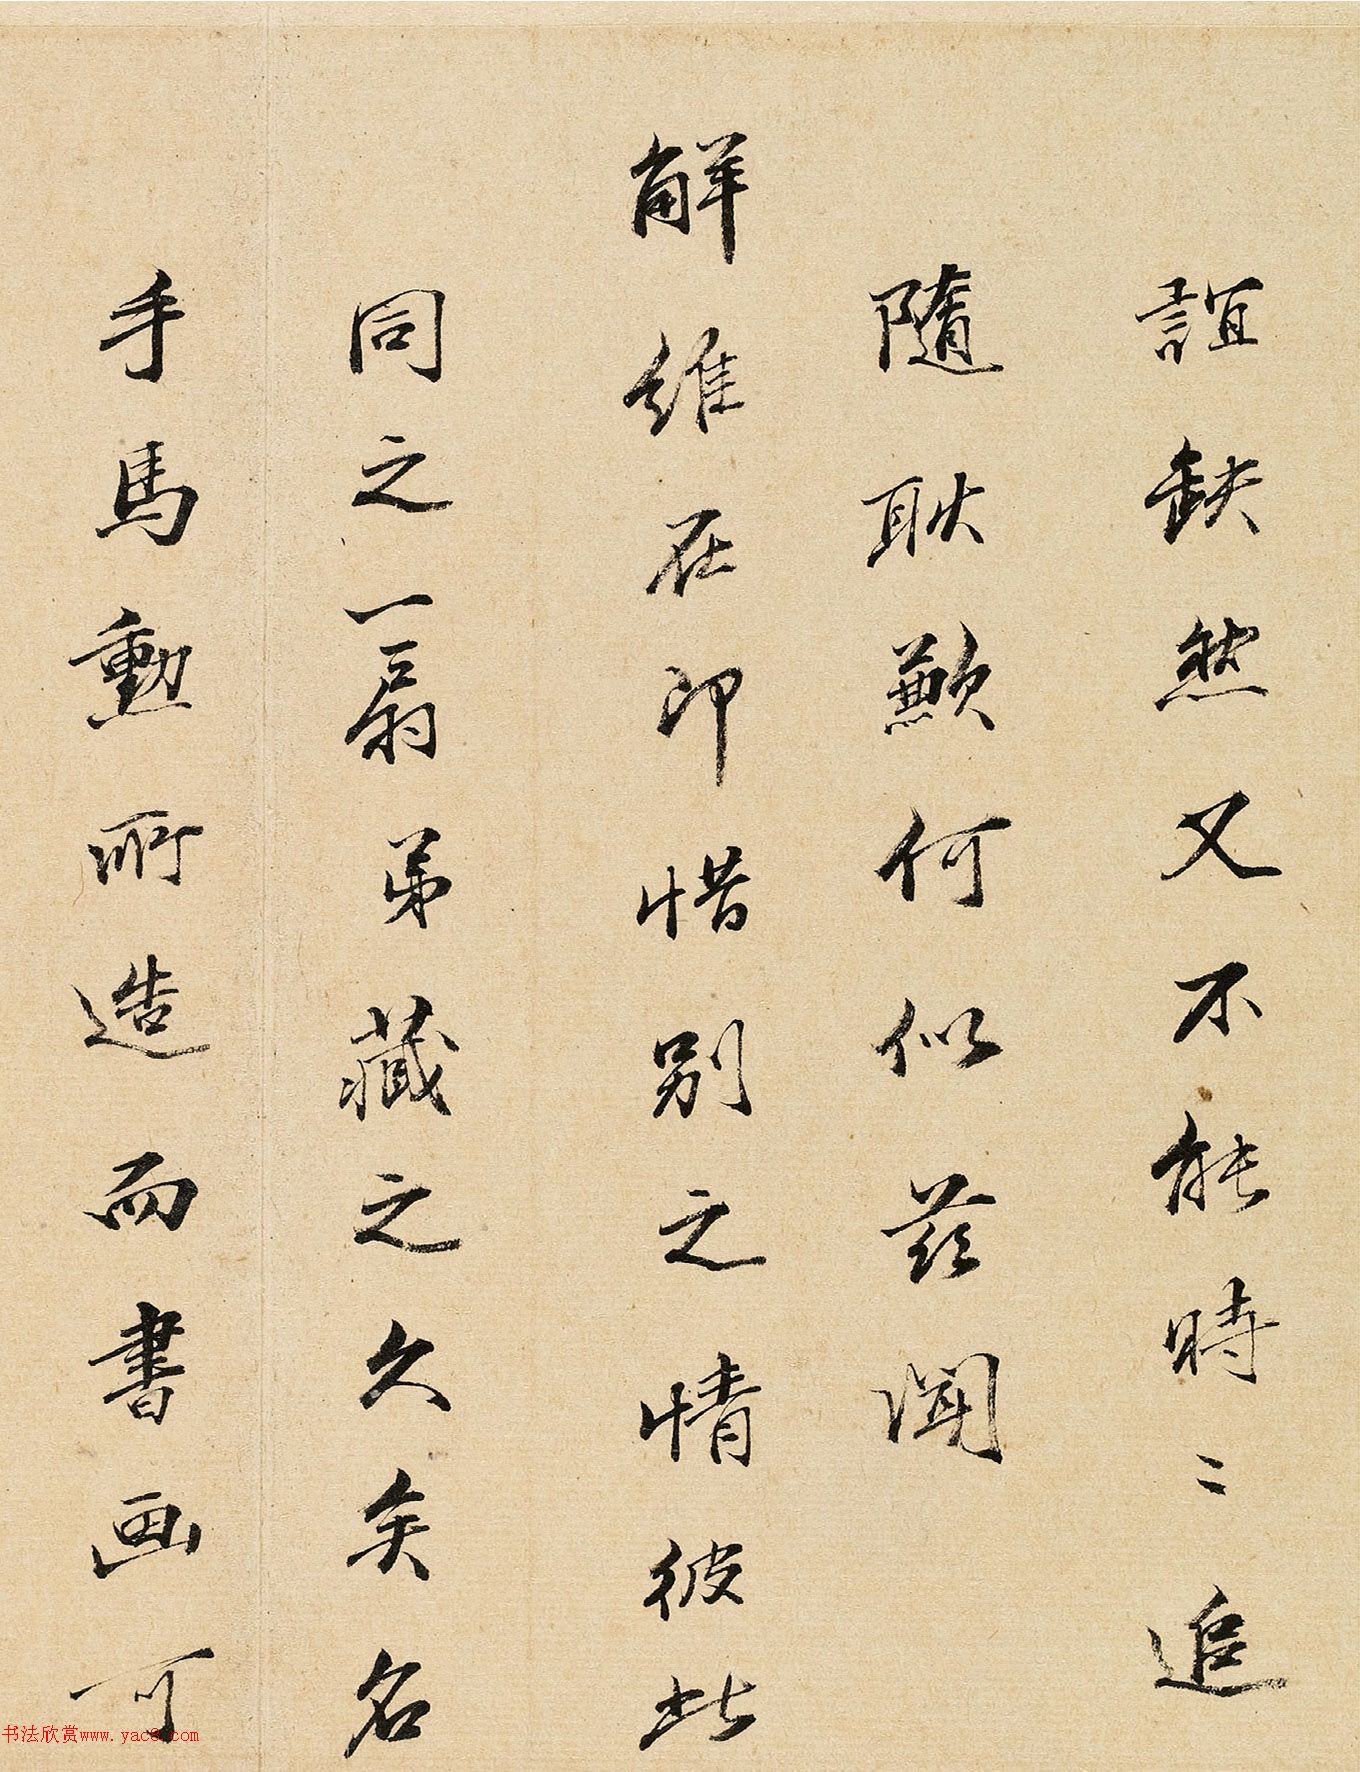 誼缺然又不能時〻追
隨耿歉何似茲聞
解維在即惜別之情彼此
同之一扇弟藏之久矣名
手馬勳所造而書画可
书法欣赏www.yac8.com